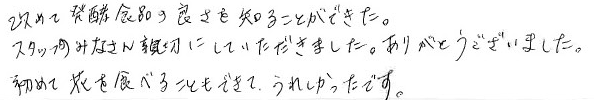 改めて発酵食品の良さを知ることができた。
スタッフのみなさん親切にしていただきました。ありがとうございました。
初めて花を食べることもできて、うれしかったです。